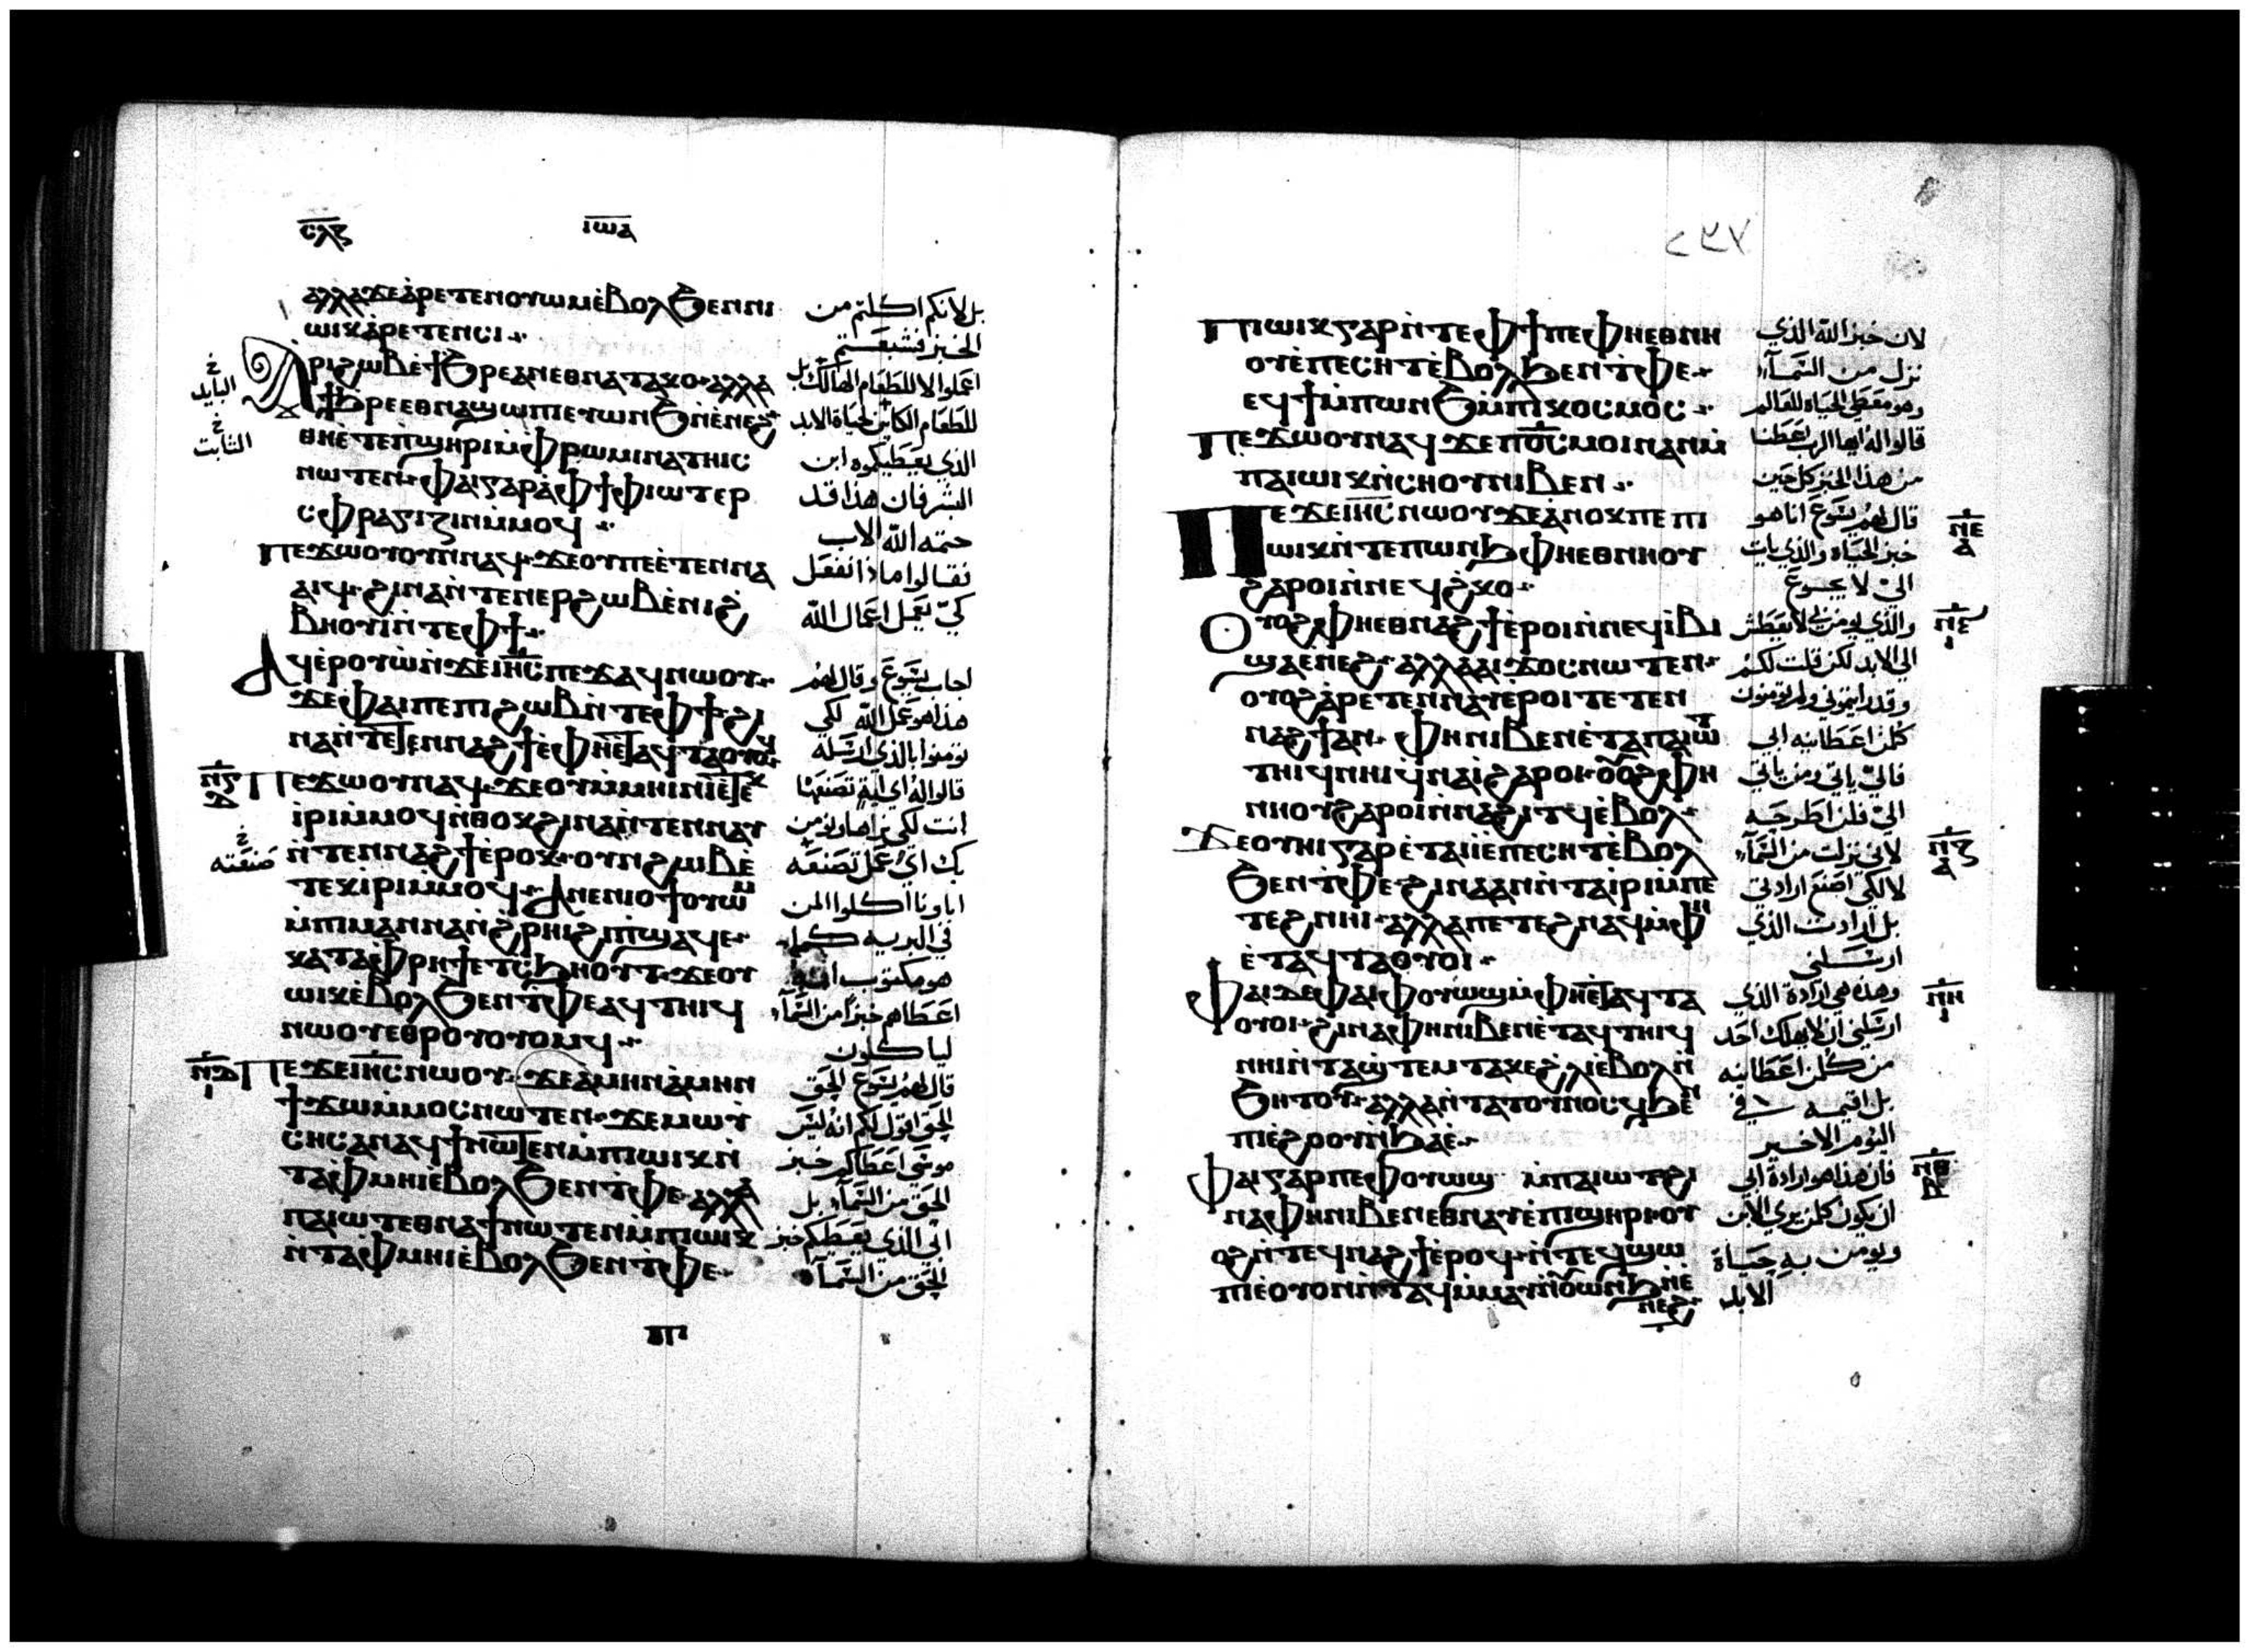 ⲥⲗⲋ ⲓⲱⲁ
ⲁⲗⲗⲁϫⲉⲁ̀ⲣⲉⲧⲉⲛⲟⲩⲱⲙⲉ̀ⲃⲟⲗϧⲉⲛⲛⲓ بل لانكم اكلتم من
ⲱⲓⲕⲁ̀ⲣⲉⲧⲉⲛⲥⲓ الخبز فشبعتم
ⲁ̀ⲣⲓϩⲱⲃⲉ̀ϯϧⲣⲉⲁⲛⲉⲑⲛⲁⲧⲁⲕⲟ ⲁⲗⲗⲁ اعملوا لا للطعام الهالك بل
ϯϧⲣⲉⲉⲑⲛⲁϣⲱⲡⲓⲉⲩⲱⲛϧⲛ̀ⲉ̀ⲛⲉϩ للطعام الكاين لحياة الابد
ⲑⲏⲉ̀ⲧⲉⲡϣⲏⲣⲓⲙ̀ⲫⲣⲱⲙⲓⲛⲁⲧⲏⲓⲥ الذي يعطيكموه ابن
ⲛⲱⲧⲉⲛ ⲫⲁⲓⲅⲁⲣⲁ̀ⲫϯⲫⲓⲱⲧⲉⲣ البشر فان هذا قد
ⲥⲫⲣⲁⲅⲓⲍⲓⲛⲙ̀ⲙⲟϥ ختمه الله الاب
ⲡⲉϫⲱⲟⲩⲟⲩⲛⲛⲁϥ ϫⲉⲟⲩⲡⲉⲉ̀ⲧⲉⲛⲛⲁ فقالوا ماذا نفعل
ⲁⲓϥ ϩⲓⲛⲁⲛ̀ⲧⲉⲛⲉⲣϩⲱⲃⲉ̀ⲛⲓϩ̀ كي نعمل اعمال الله
ⲃⲏⲟⲩⲓⲛ̀ⲧⲉⲫϯ
ⲁϥⲉ̀ⲣⲟⲩⲱ̀ⲛ̀ϫⲉⲓⲏⲥⲡⲉϫⲁϥⲛⲱⲟⲩ اجاب يسوع وقال لهم
ϫⲉⲫⲁⲓⲡⲉⲡⲓϩⲱⲃⲛ̀ⲧⲉⲫϯ ϩⲓ هذا هو عمل الله لكي
ⲛⲁⲛ̀ⲧⲉⲧⲉⲛⲛⲁϩϯⲉ̀ⲫⲏⲉⲧⲁϥⲧⲁⲟⲩⲟϥ تومنوا بالذي ارسله
ⲡⲉϫⲱⲟⲩⲛⲁϥ ϫⲉⲟⲩⲙ̀ⲙⲏⲓⲛⲓⲉ̀ⲧⲉⲕ قالوا له اي اية تصنعها
ⲓ̀ⲣⲓⲙ̀ⲙⲟϥⲛ̀ⲑⲟⲕϩⲓⲛⲁⲛ̀ⲧⲉⲛⲛⲁⲩ انت لكي نراها ونومن
ⲛ̀ⲧⲉⲛⲛⲁϩϯⲉ̀ⲣⲟⲕ ⲟⲩⲛϩⲱⲃⲉ̀ بك اي عمل تصنعه
ⲧⲉⲕⲓⲣⲓⲙ̀ⲙⲟϥ ⲁⲛⲉⲛⲓⲟϯⲟⲩⲱⲙ اباونا اكلوا المن
ⲙ̀ⲡⲓⲙⲁⲛⲛⲁⲛ̀ϩ̀ⲣⲏⲓϩⲓⲡϣⲁϥⲉ في البرية كما
ⲕⲁⲧⲁⲫⲣⲏϯⲉⲧⲥϧⲏⲟⲩⲧ ϫⲉⲟⲩ هو مكتوب
ⲱⲓⲕⲉ̀ⲃⲟⲗϧⲉⲛⲧ̀ⲫⲉⲁϥⲧⲏⲓϥ اعطاهم خبزا من السمآء
ⲛⲱⲟⲩⲉⲑⲣⲟⲩⲟⲩⲟⲙϥ لياكلون
ⲡⲉϫⲉⲓⲏⲥⲛⲱⲟⲩ ϫⲉⲁ̀ⲙⲏⲛⲁ̀ⲙⲏⲛ قال لهم يسوع الحق
ϯϫⲱⲙ̀ⲙⲟⲥⲛⲱⲧⲉⲛ ϫⲉⲙⲱⲩ̀ الحق اقول لكم انه ليس
ⲥⲏⲥⲁⲛⲁϥϯⲛⲱⲧⲉⲛⲙ̀ⲡⲓⲱⲓⲕⲛ̀ موسى اعطاكم خبز
ⲧⲁⲫ̀ⲙⲏⲓⲉ̀ⲃⲟⲗϧⲉⲛⲧ̀ⲫⲉ ⲁⲗⲗⲁ الحق من السمآء بل
ⲡⲁⲓⲱⲧⲉⲑⲛⲁϯⲛⲱⲧⲉⲛⲙ̀ⲡⲓⲱⲓⲕ ابي الذي يعطيكم خبز
ⲛ̀ⲧⲁⲫ̀ⲙⲏⲓⲉ̀ⲃⲟⲗϧⲉⲛⲧ̀ⲫⲉ الحق من السمآء
الثابت
صنعته
٢٣٧
ⲡⲓⲱⲓⲕⲅⲁⲣⲛ̀ⲧⲉⲫϯⲡⲉⲫⲏⲉⲑⲛⲏ لان خبز الله الذي
ⲟⲩⲉ̀ⲡⲉⲥⲏⲧⲉ̀ⲃⲟⲗϧⲉⲛⲧ̀ⲫⲉ نزل من السمآء
ⲉϥϯⲙ̀ⲡⲱⲛϧⲙ̀ⲡⲓⲕⲟⲥⲙⲟⲥ وهو معطي الحياة للعالم
ⲡⲉϫⲱⲟⲩⲛⲁϥ ϫⲉⲡⲟⲥⲙⲟⲓⲛⲁⲛⲙ̀ قالوا له ايها الرب اعطنا
ⲡⲁⲓⲱⲓⲕⲛ̀ⲥⲏⲟⲩⲛⲓⲃⲉⲛ من هذا الخبز كل حين
ⲡⲉϫⲉⲓⲏⲥⲛⲱⲟⲩϫⲉⲁ̀ⲛⲟⲕⲡⲉⲡⲓ قال لهم يسوع انا هو
ⲱⲓⲕⲛ̀ⲧⲉⲡⲱⲛϧⲫⲏⲉⲑⲛⲏⲟⲩ خبز الحياة والذي يات
ϩⲁⲣⲟⲓⲛ̀ⲛⲉϥϩ̀ⲕⲟ الي لا يجوع
ⲟⲩⲟϩⲫⲏⲉⲑⲛⲁϩϯⲉ̀ⲣⲟⲓⲛ̀ⲛⲉϥⲓⲃⲓ والذي يومن بي لا يعطش
ϣⲁⲉ̀ⲛⲉϩ ⲁⲗⲗⲁⲁⲓϫⲟⲥⲛⲱⲧⲉⲛ الي الابد لكن قلت لكم
ⲟⲩⲟϩⲁ̀ⲣⲉⲧⲉⲛⲛⲁⲩⲉ̀ⲣⲟⲓⲧⲉⲧⲉⲛ وقد رايتموني ولم تومنون
ⲛⲁϩϯⲁⲛ ⲫⲏⲛⲓⲃⲉⲛⲉ̀ⲧⲁⲡⲁⲓⲱⲧ كلمن اعطانيه ابي
ⲧⲏⲓϥⲛⲏⲓϥ̀ⲛⲁⲓ̀ϩⲁⲣⲟⲓ ⲟⲩⲟϩⲫⲏ فالي ياتي ومن ياتي
ⲛⲏⲟⲩϩⲁⲣⲟⲓⲛ̀ⲛⲁϩⲓⲧϥⲉ̀ⲃⲟⲗ الي فلن اطرحه
ϫⲉⲟⲩⲏⲓⲅⲁⲣⲉ̀ⲧⲁⲓⲓ̀ⲉ̀ⲡⲉⲥⲏⲧⲉ̀ⲃⲟⲗ لاني نزلت من السمآء
ϧⲉⲛⲧ̀ⲫⲉ ϩⲓⲛⲁⲁⲛⲛ̀ⲧⲁⲓ̀ⲣⲓⲙ̀ⲡⲉ لا لكي اصنع ارادتي
ⲧⲉϩⲛⲏⲓ ⲁⲗⲗⲁⲡⲉⲧⲉϩⲛⲁϥⲙ̀ⲫⲏ بل ارادت الذي
ⲉ̀ⲧⲁϥⲧⲁⲟⲩⲟⲓ ارسلني
ⲫⲁⲓⲇⲉⲫⲁⲓⲫⲟⲩⲱϣⲙ̀ⲫⲏⲉⲧⲁϥⲧⲁ وهذه هي ارادة الذي
ⲟⲩⲟⲓ ϩⲓⲛⲁⲫⲏⲛⲓⲃⲉⲛⲉ̀ⲧⲁϥⲧⲏⲓϥ ارسلني ان لا يهلك احد
ⲛⲏⲓⲛ̀ⲧⲁϣ̀ⲧⲉⲙⲧⲁⲕⲉϩ̀ⲗⲓⲉ̀ⲃⲟⲗⲛ̀ من كلمن اعطانيه
ϧⲏⲧⲟⲩ ⲁⲗⲗⲁⲛ̀ⲧⲁⲧⲟⲩⲛⲟⲥϥϧⲉⲛ بل اقيمه في
ⲡⲓⲉ̀ϩⲟⲟⲩⲛ̀ϧⲁⲉ̀ اليوم الاخير
ⲫⲁⲓⲅⲁⲣⲡⲉⲫⲟⲩⲱϣ ⲙ̀ⲡⲁⲓⲱⲧϩⲓ فان هذا هو ارادة ابي
ⲛⲁⲫⲏⲛⲓⲃⲉⲛⲉⲑⲛⲁⲩⲉ̀ⲡϣⲏⲣⲓⲟⲩ ان يكون كلمن يري الابن
ⲟϩⲛ̀ⲧⲉϥⲛⲁϩϯⲉ̀ⲣⲟϥ ⲛ̀ⲧⲉϥϣⲱ ويومن به حياة
ⲡⲓⲉ̀ⲟⲩⲟⲛⲛ̀ⲧⲁϥⲙ̀ⲙⲁⲩⲛ̀ⲟⲩⲱⲛϧⲛ̀ⲉ̀ الابد
ⲛⲉϩ
ⲛⲉ ⲁ
ⲛⲋ ⲓ
ⲛⲍ ⲁ
ⲛⲏ ⲓ
ⲛⲑ